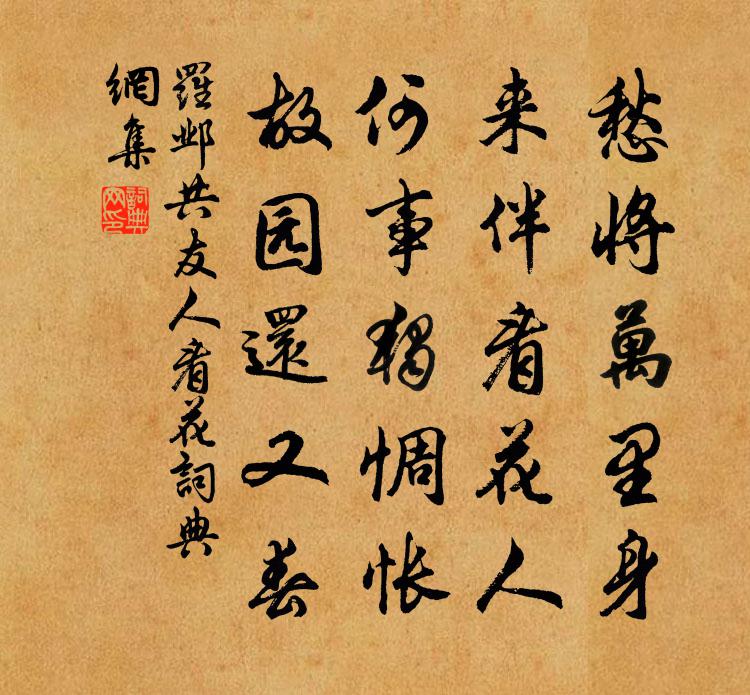 愁将萬里身
来伴看花人
何事獨惆怅
故园還又春
羅邺共友人看花詞典
網集
詞典網印